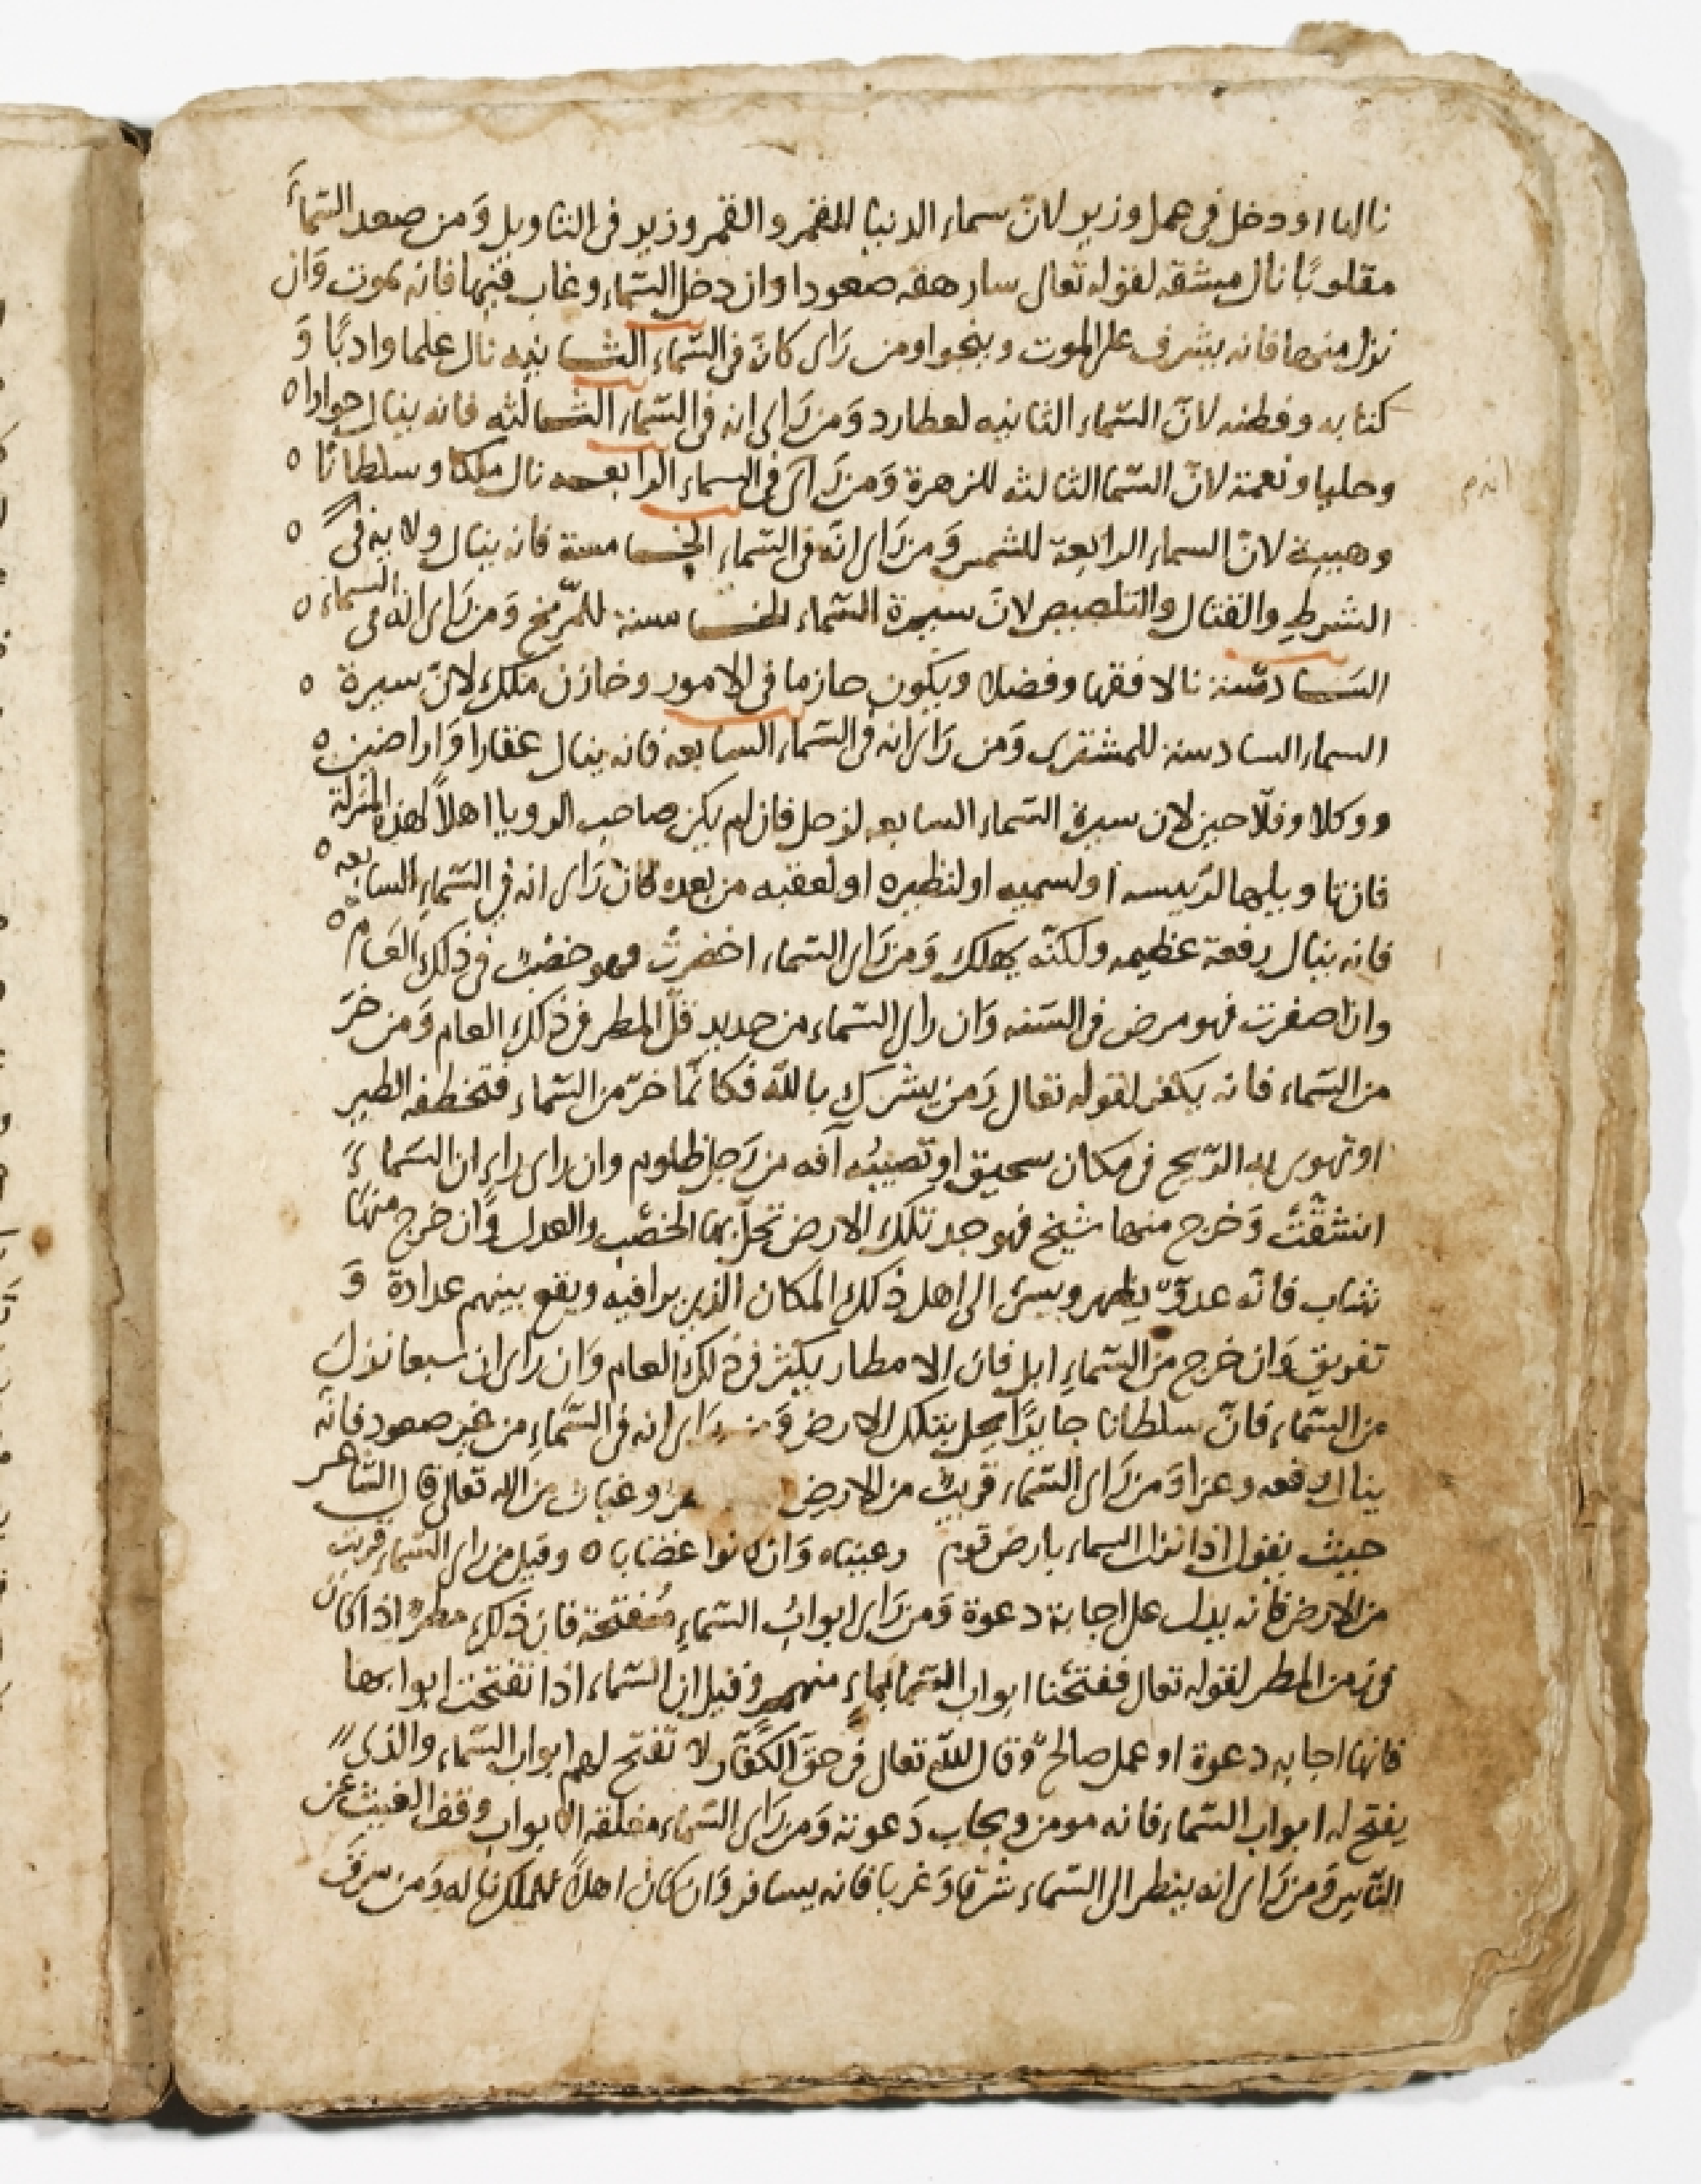 نالها او دخل في عمل وزير لانّ سماء الدنيا للقمر والقمر وزير في التاويل وَمن صعد السّماءَ
مقلوبًا نال مشقه لقوله تعالى سارهقه صعودا وان دخل السّماء وغاب فيها فانه يموت وَان
نزل منها فانه يشرف على الموت وينجوا ومن رَاى كانّ في السّماء الثانيه نال علما وادبًا وَ
كتابه وفطنه لانّ السّماء الثانيه لعطارد وَمن رَاى انه في السّماء الثالثه فانه ينال جوارا ه
وحليا ونعمة لانّ السّما الثالثه للزهرة وَمن رَاى في السماء الرابعه نال ملكا وسلطانًا ه
وهيبة لانّ السماء الرابعة للشمس وَمن رَاى انّه في السّماء الخامسة فانه ينال ولايه في ه
الشرطِ والقتال والتلصيص لانّ سيرة السّماء الخامسة للمرّيخ وَمن رَاى انّه في السماء ه
السَادسّة نال فقها وفضلا ويكون حازما في الامور وخازن ملك لانّ سيرة ه
السماء السادسة للمشتري وَمن رَاى انه في السّماء السابعه فانه ينال عقارا وَاراضين ه
ووكلا وفلّاحين لان سيرة السّماء السابعه لزحل فان لم يكن صاحب الرويا اهلاً لهذه المنزلة
فان تاويلها لرَييسه او لسميه او لنظيره او لعقبه من بعده فان رَاى انه في السّماءِ السابعه ه
فانه ينال رفعة عظيمه ولكنّه يهلك وَمن رَاى السّماء اخضرتْ فهو خصْبْ في ذلك العَام ه
وان اصفرت فهو مرض في السَنه وَان راى السّماء من حديد قلّ المطر في ذلك العام وَمن خرّ
من السّماء فانه يكفر لقوله تعالى وَمن يشرك بالله فكانّما خرّ من السّماء فتخطفه الطير
او تهوى به الرّيح في مكان سحيق او تصيبُه آفه من رَجل ظلوم وان راى راء ان السّماءَ
انشقّتْ وَخرج منها شيخ فهو جد تلك الارض تحلّ بها الخصْب والعدل وَان خرج منها
شاب فانّه عدوّ يظهر ويسئ الى اهل ذلك المكان الذين براقبه ويقع بينهم عداوة وَ
تفريق وَان خرج من السّماءِ ابل فان الامطار يكثر في ذلك العام وَان راى ان سبعا نزلَ
من السّماء فانّ سلطانا جايرًا يحل بتلك الارض وَمن رَاى انه في السَّماءِ من غير صعود فانّه
ينال رفعه وعزا وَمن رَاى السّماء قربتْ من الارض وغياث من الله تعالى قال الشاعر
حيث يقول اذا نزل السماء بارض قوم رعيناه وَان كانوا غضابا ه وقيل من راى السّماء قربت
من الارض فانه يدل على اجابة دعوة وَمن رَاى ابوابُ السّماءِ مُنفتحة فان ذلك مطرٌ اذا كان
في زمن المطر لقوله تعالى ففتحْنا ابواب السّما بماءٍ منهمر وقيل ان السّماء اذا تفتحت ابوابها
فانها اجابه دعوة او عمل صالح وَقال الله تعالى في حقّ الكفّار لا تفتح لهم ابواب السّماء والذى
يفتح له ابواب السّماء فانه مومن ويجاب دَعوته وَمن رَاى السّماء مغلقه الابواب وقف الغيث عن
النّاس وَمن رَاى انه ينظر الى السّماء شرقا وَغربا فانه يسافر وَان كان اهلاً للملك ناله وَمن سرقَ